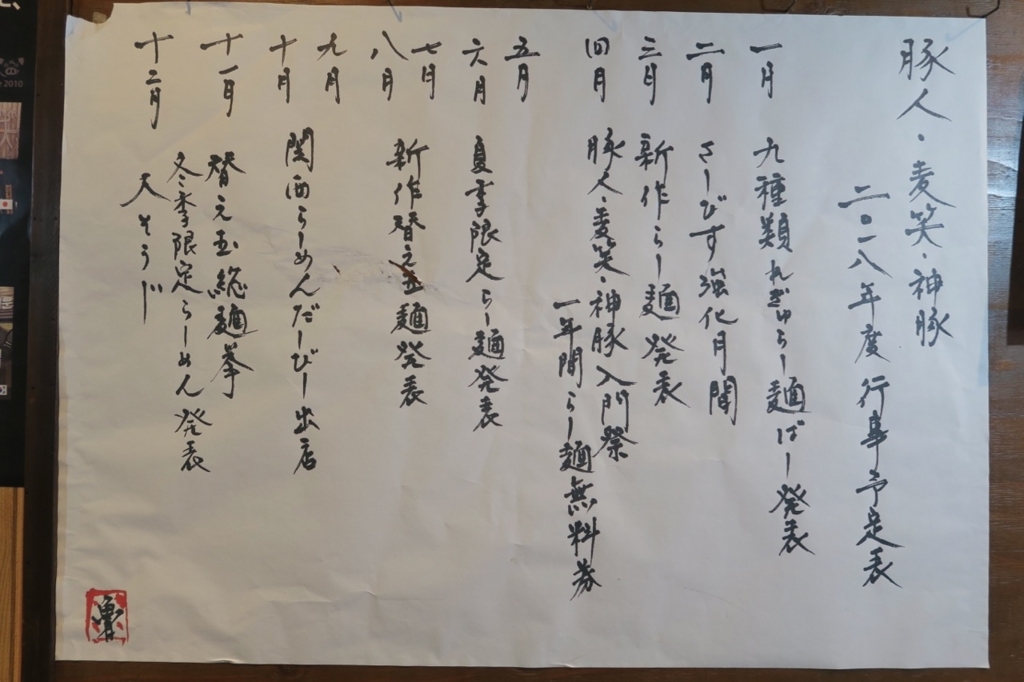 豚人・麦笑・神豚
二〇一八年度 行事予定表
一月 九種類れぎゅらー麺ばー発表
二月 さーびす強化月間
三月 新作らー麺発表
四月 豚人・麦笑・神豚入門祭
一年間らー麺無料券
五月
六月 夏季限定らー麺発表
七月
八月 新作替え玉麺発表
九月
十月 関西らーめんだーびー出店
十一月 替え玉総麺挙
十二月 冬季限定らーめん発表
大そうじ
2010